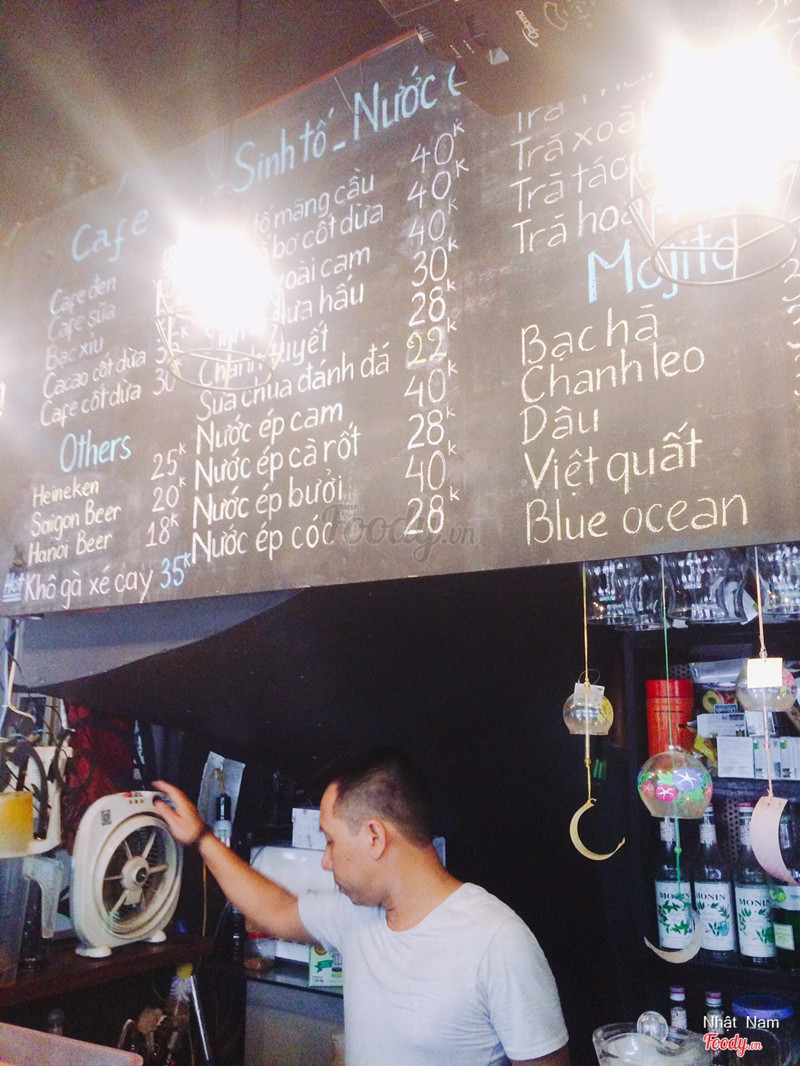 Cafe
Cafe đen
Cafe sữa
Bạc xỉu
Cacao cốt dừa
Cafe cốt dừa 30
Others
Heineken 25K
Saigon Beer 20K
Hanoi Beer 18K
Hot Khô gà xé cay 35K
Sinh tố - Nước
tố mãng cầu 40K
bơ cốt dừa 40K
xoài cam 40K
dưa hấu 30K
Chanh tuyết 28K
Sữa chua đánh đá 22K
Nước ép cam 40K
Nước ép cà rốt 28K
Nước ép bưởi 40K
Nước ép cóc 28K
Trà
Trà xoài
Trà táo
Trà hoa
Mojito
Bạc hà
Chanh leo
Dâu
Việt quất
Blue ocean
Optoma
Foody.vn
MONIN
MONIN
MONIN
Nhật Nam
Foody.vn